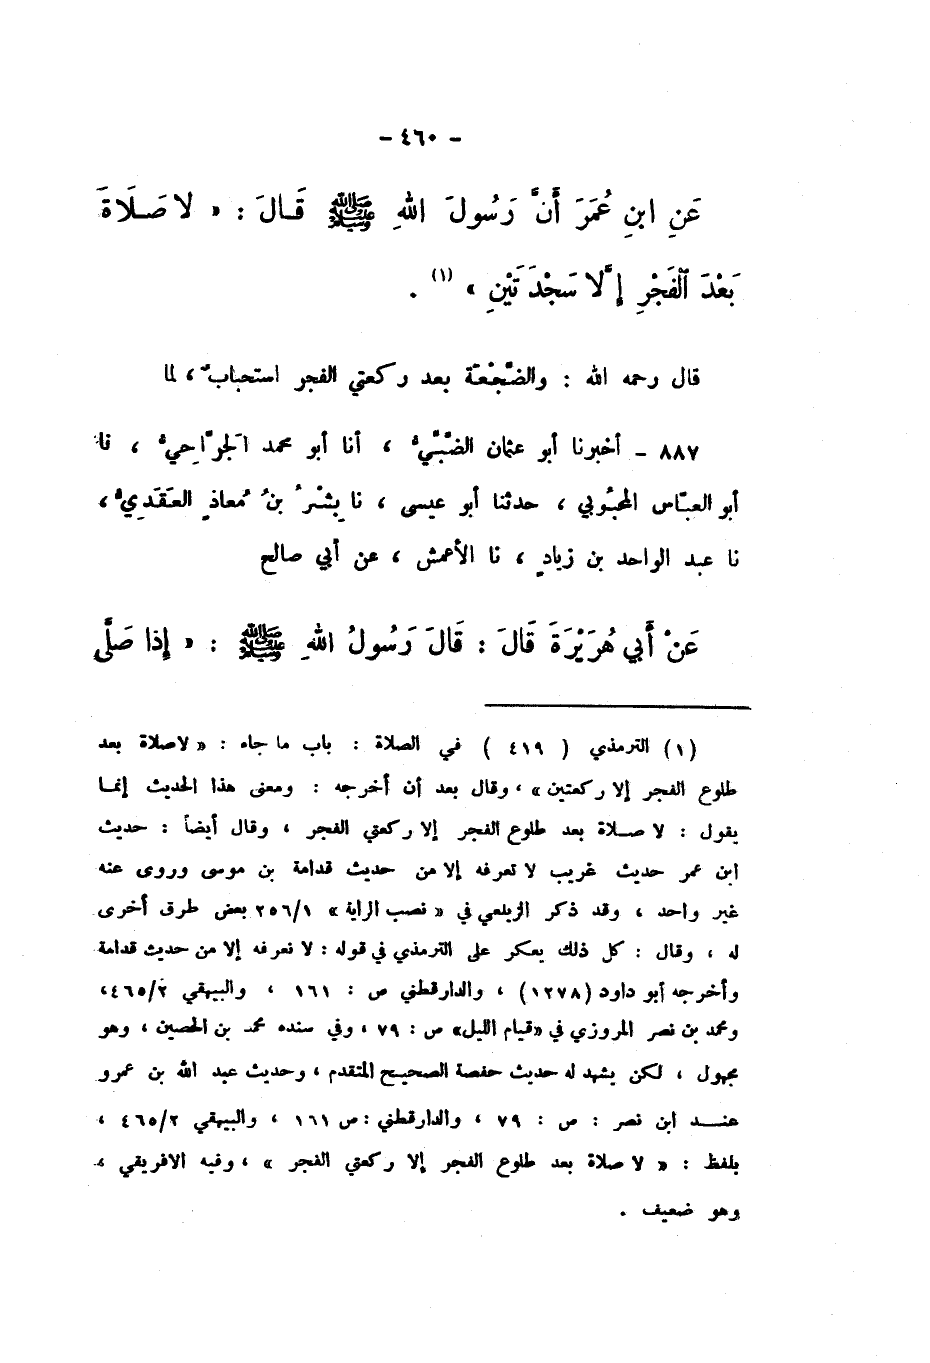 - ٤٦٠ -
عَنِ ابنِ عُمَرَ أَنَّ رَسُولَ اللهِ ﷺ قَالَ : « لا صَلَاةَ
بَعْدَ الْفَجْرِ إِلَّا سَجْدَتَيْنِ » (١) .
قال رحمه الله : والضَّجْعَة بعد ركعتي الفجر استحبابٌ ، لما
٨٨٧ - أخبرنا أبو عثمان الضَّبِّيُّ ، أنا أبو محمد الجرَّاحِيُّ ، نا
أبو العبّاس المحبُوبي ، حدثنا أبو عيسى ، نا بِشْرُ بنُ مُعاذٍ العَقَدِيُّ ،
نا عبد الواحد بن زيادٍ ، نا الأعمش ، عن أبي صالح
عَنْ أَبي هُرَيْرَةَ قَالَ : قَالَ رَسُولُ اللهِ ﷺ : « إِذا صَلَّى
(١) الترمذي ( ٤١٩ ) في الصلاة : باب ما جاء : « لا صلاة بعد
طلوع الفجر إلا ركعتين » ، وقال بعد أن أخرجه : ومعنى هذا الحديث إنما
يقول : لا صلاة بعد طلوع الفجر إلا ركعتي الفجر ، وقال أيضاً : حديث
ابن عمر حديث غريب لا تعرفه إلا من حديث قدامة بن موسى وروى عنه
غير واحد ، وقد ذكر الزيلعي في « نصب الراية » ٢٥٦/١ بعض طرق أخرى
له ، وقال : كل ذلك يعكر على الترمذي في قوله : لا نعرفه إلا من حديث قدامة
وأخرجه أبو داود (١٢٧٨) ، والدارقطني ص : ١٦١ ، والبيهقي ٤٦٥/٢ ،
ومحمد بن نصر المروزي في «قيام الليل» ص : ٧٩ ، وفي سنده محمد بن الحصين ، وهو
مجهول ، لكن يشهد له حديث حفصة الصحيح المتقدم ، وحديث عبد الله بن عمرو
عند ابن نصر : ص : ٧٩ ، والدارقطني : ص ١٦١ ، والبيهقي ٤٦٥/٢ ،
بلفظ : « لا صلاة بعد طلوع الفجر إلا ركعتي الفجر » ، وفيه الافريقي ،
وهو ضعيف .